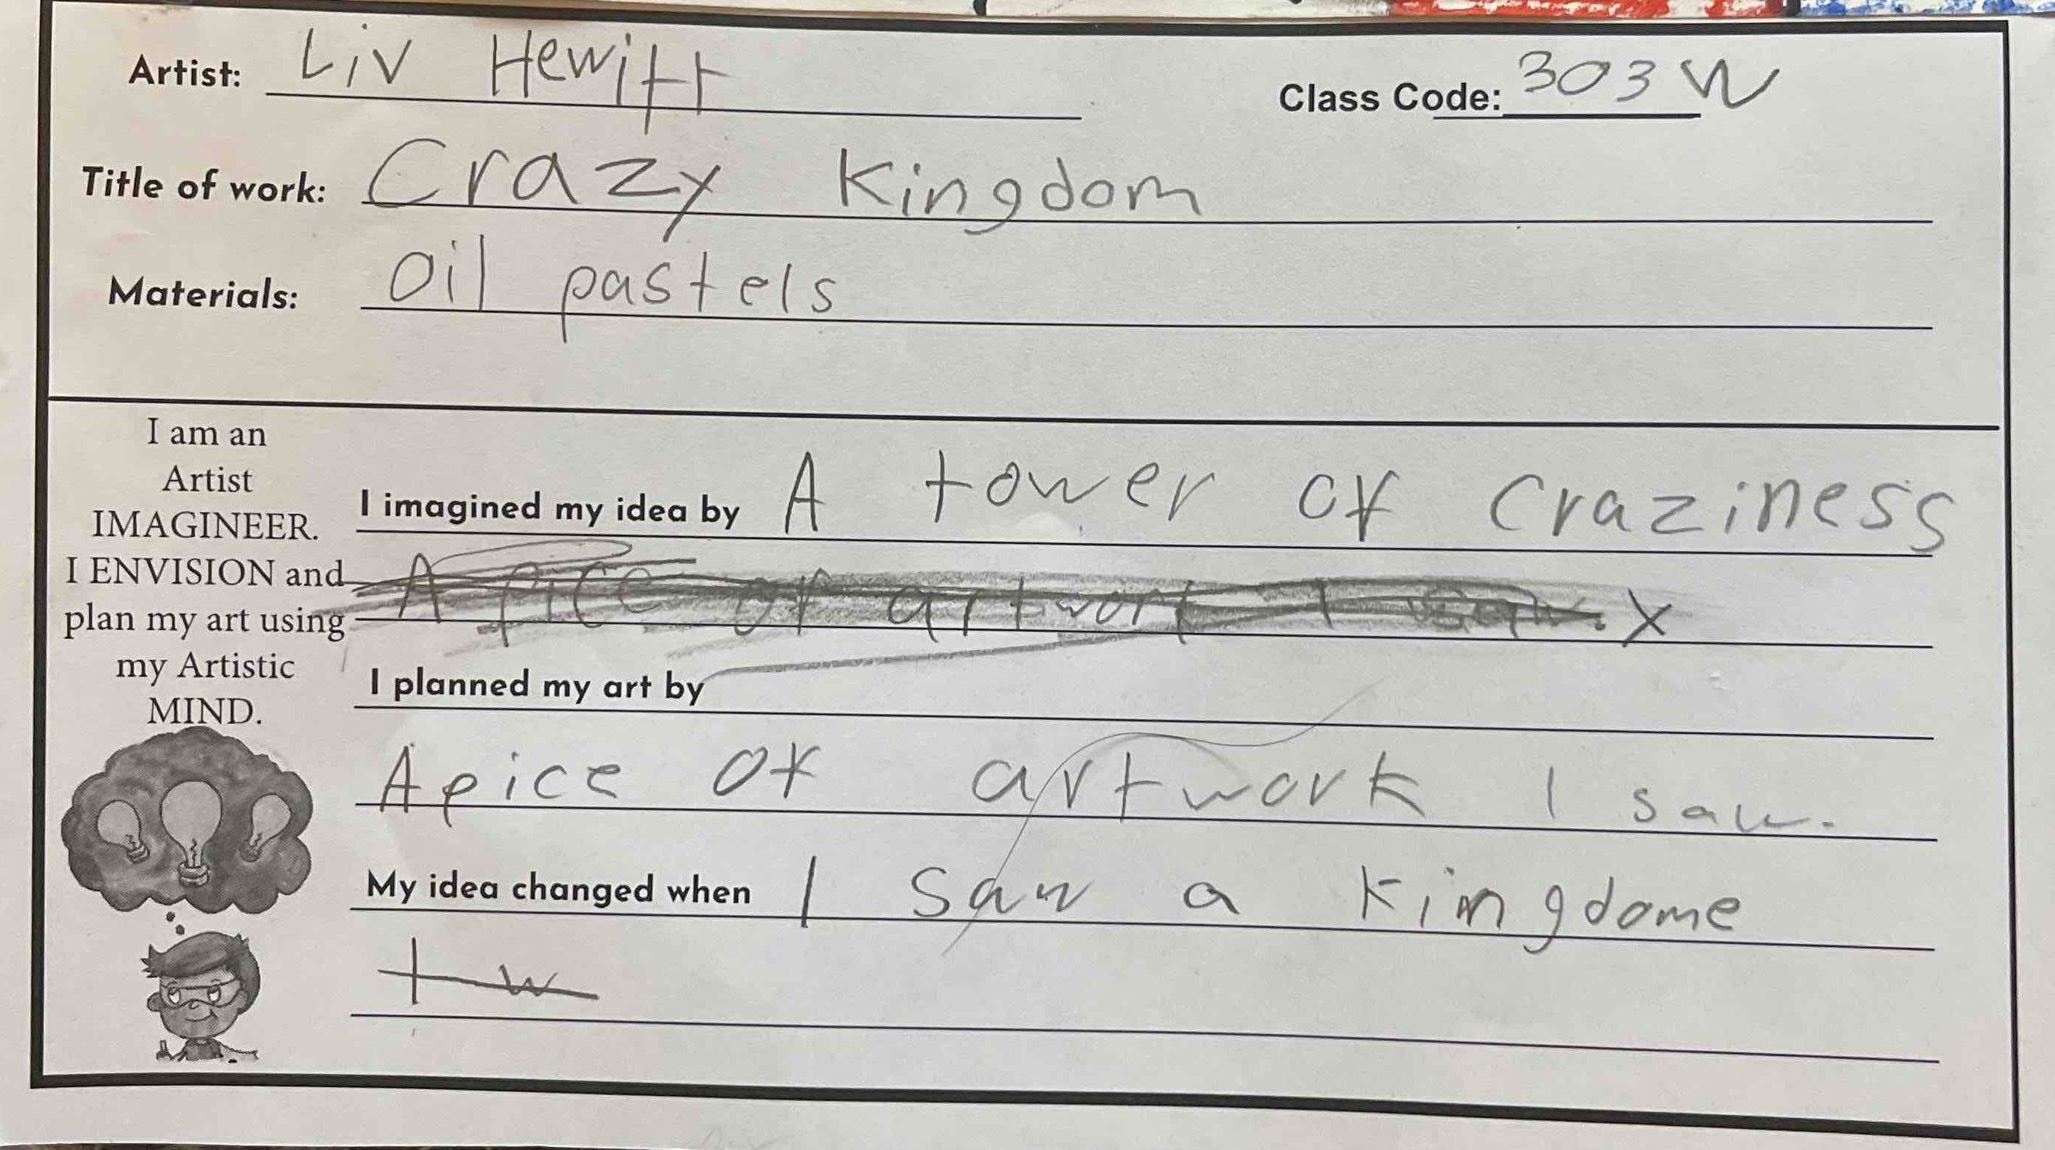 Artist: Liv Hewitt Class Code: 303 W
Title of work: Crazy Kingdom
Materials: Oil pastels
I am an
Artist
IMAGINEER.
I ENVISION and
plan my art using
my Artistic
MIND.
I imagined my idea by A tower of craziness
A pice of artwork I saw. x
I planned my art by
A pice of artwork I saw.
My idea changed when I saw a kingdome
tw